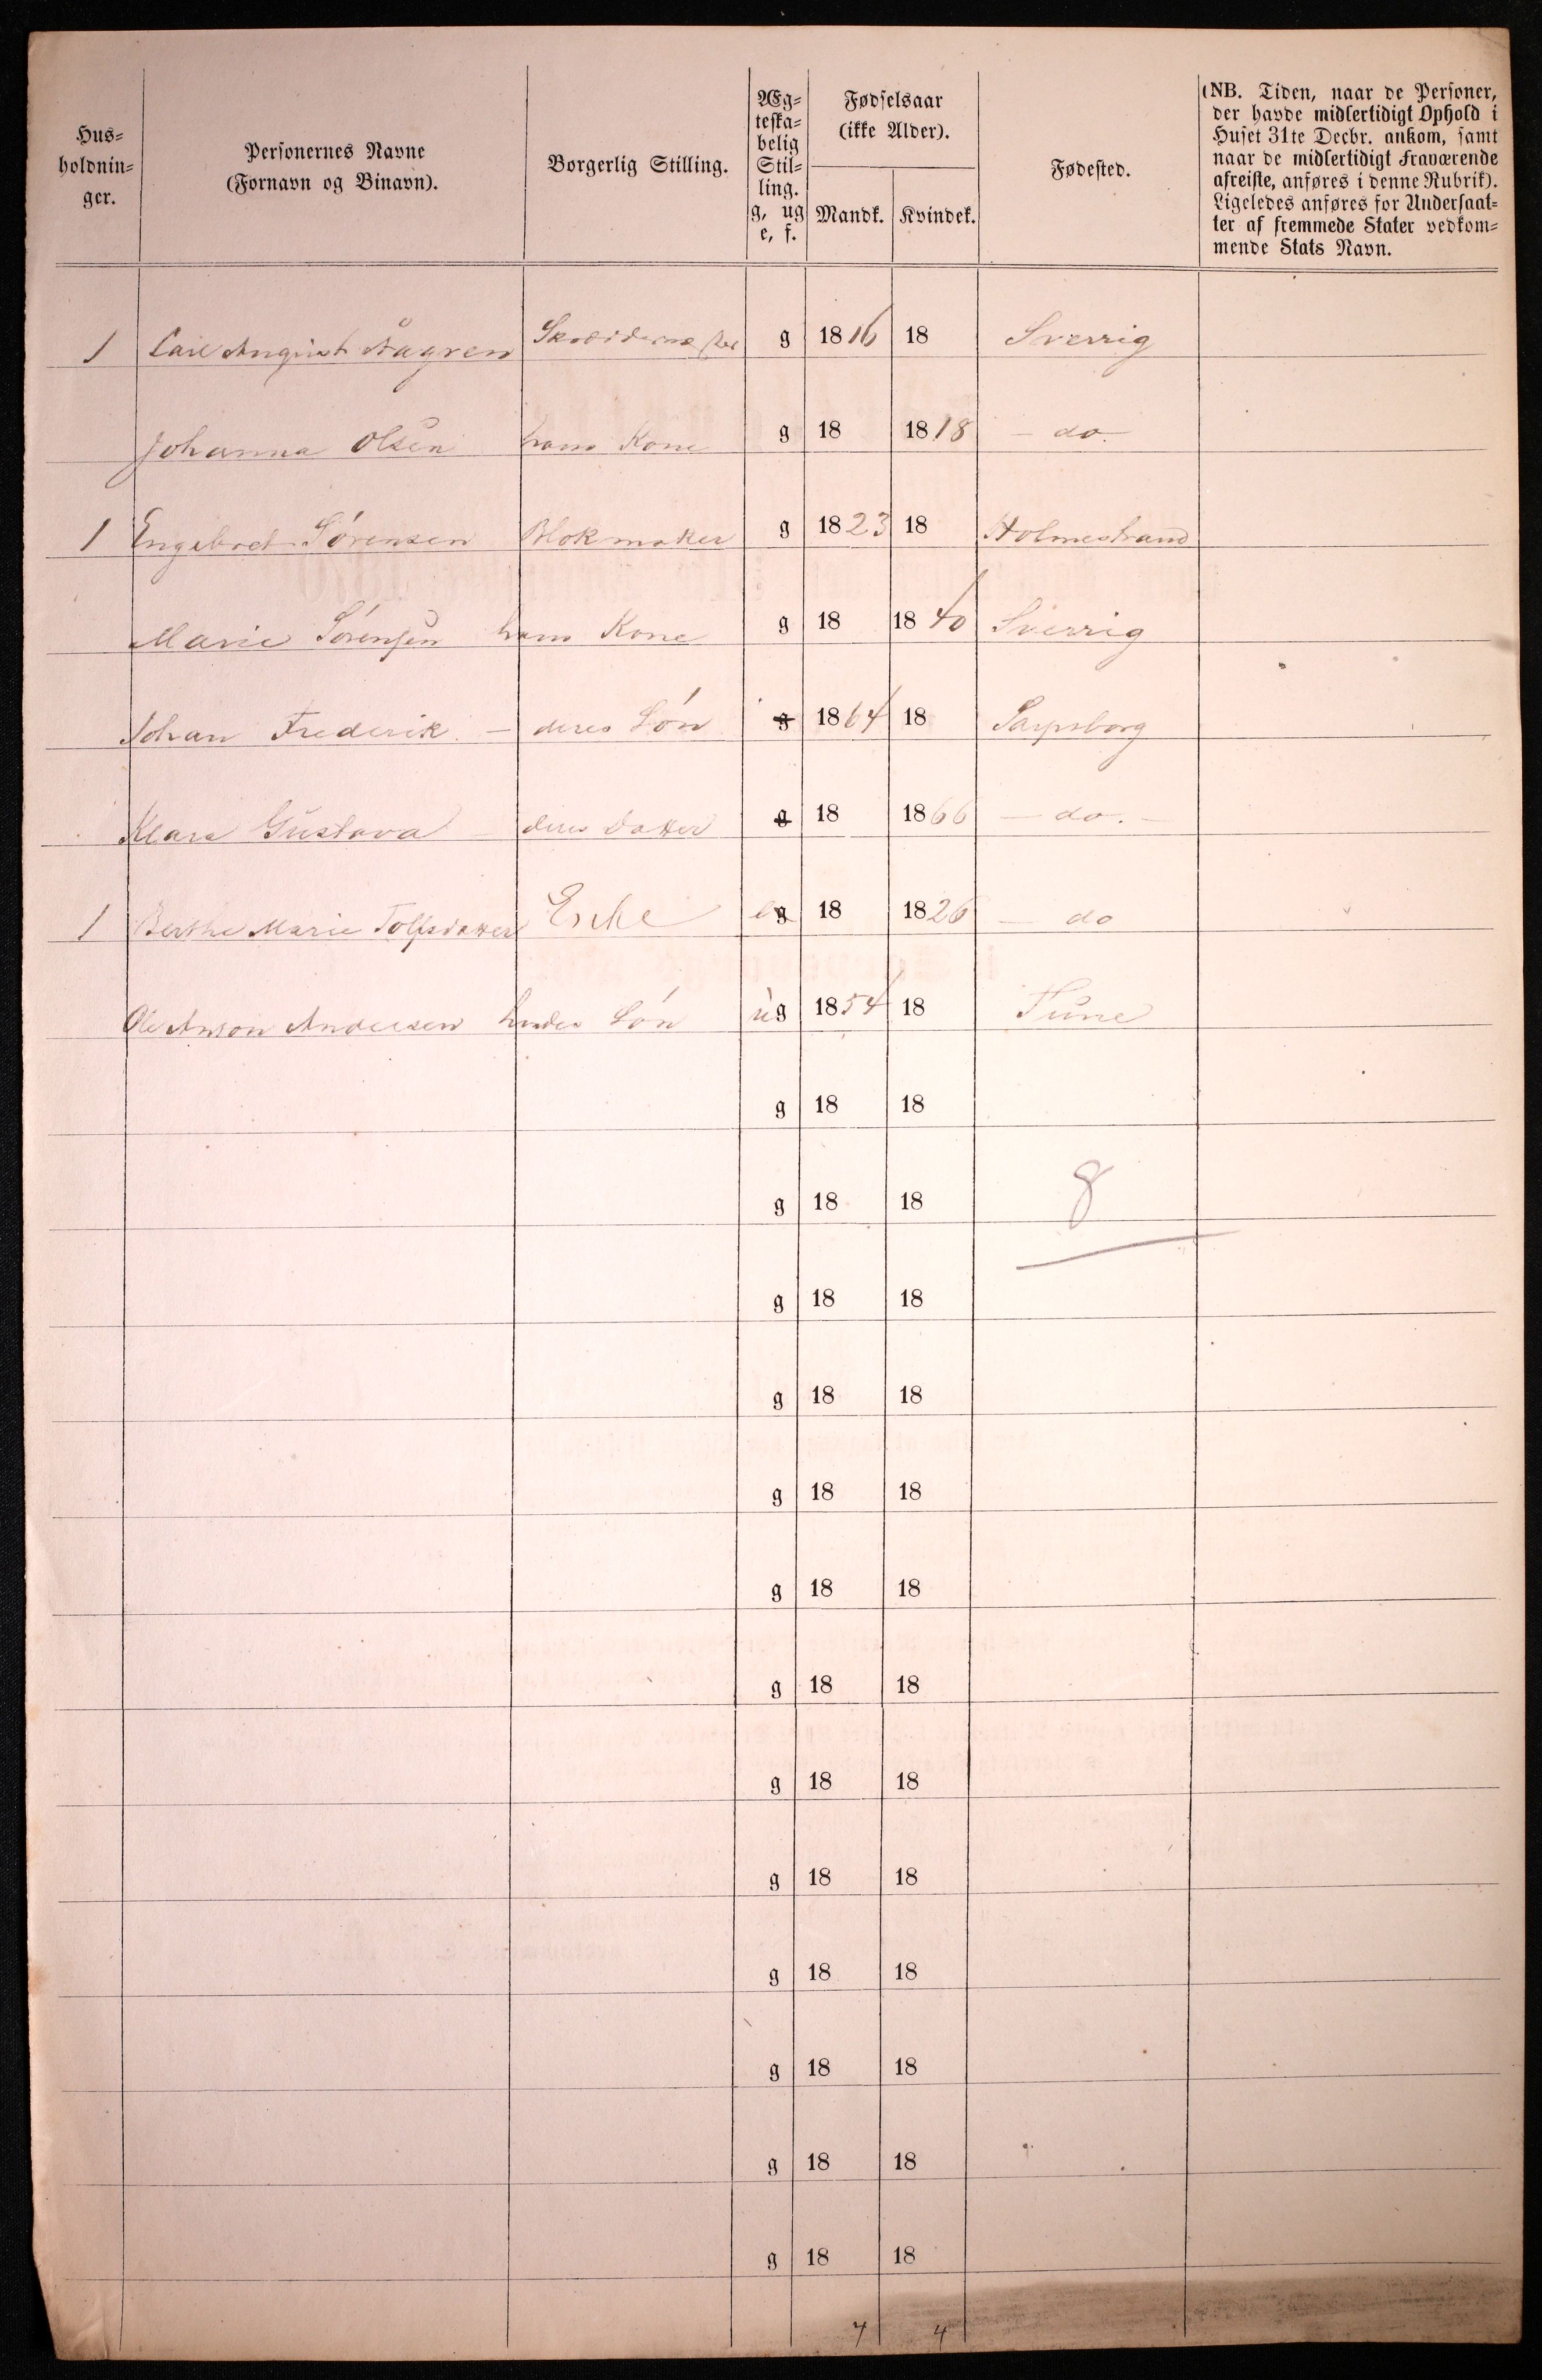 Hus-
holdnin-
ger.
Personernes Navne
(Fornavn og Binavn).
Borgerlig Stilling.
Æg-
teska-
belig
Stil-
ling.
g, ug
e, f.
Fødselsaar
(ikke Alder).
Mandk. Kvindek.
Fødested.
(NB. Tiden, naar de Personer,
der havde midlertidigt Ophold i
Huset 31te Decbr. ankom, samt
naar de midlertidigt Fraværende
afreiste, anføres i denne Rubrik).
Ligeledes anføres for Undersaat-
ter af fremmede Stater vedkom-
mende Stats Navn.
1 Carl August Ågren Skrædermester g 1816 18 Sverrig
Johanna Olsen hans Kone g 18 1818 — do.
1 Engebret Sörensen Blokmaker g 1823 18 Holmestrand
Marie Sörensen hans Kone g 18 1840 Sverrig
Johan Frederik — deres Sön g 1864 18 Sarpsborg
Klara Gustava — deres Datter g 18 1866 — do. —
1 Berthe Marie Tolfsdatter Enke e g 18 1826 — do
Ole Anton Andersen hendes Sön ug 1854 18 Tune
g 18 18
g 18 18 8
g 18 18
g 18 18
g 18 18
g 18 18
g 18 18
g 18 18
g 18 18
g 18 18
g 18 18
g 18 18
g 18 18
4 4